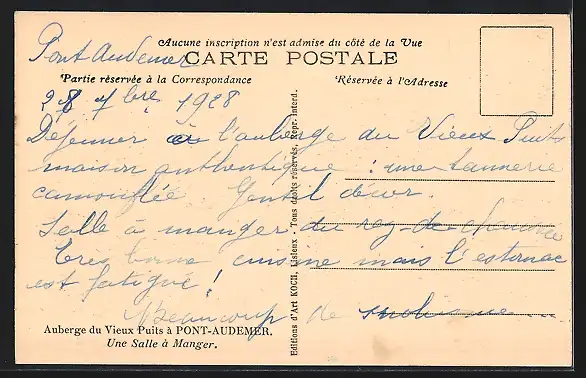 Aucune inscription n'est admise du côté de la Vue
Pont Audemer
CARTE POSTALE
Partie réservée à la Correspondance
Réservée à l'Adresse
28 7bre 1928
Déjeuner à l'auberge du Vieux Puits
maison authentique : une tannerie
camouflée. Gentil décor.
Salle à manger du rez-de-chaussée
Très bonne cuisine mais l'estomac
est fatigué !
Beaucoup de
Auberge du Vieux Puits à PONT-AUDEMER.
Une Salle à Manger.
Editions d'Art KOCH, Lisieux - Tous droits réservés, Repr. Interd.